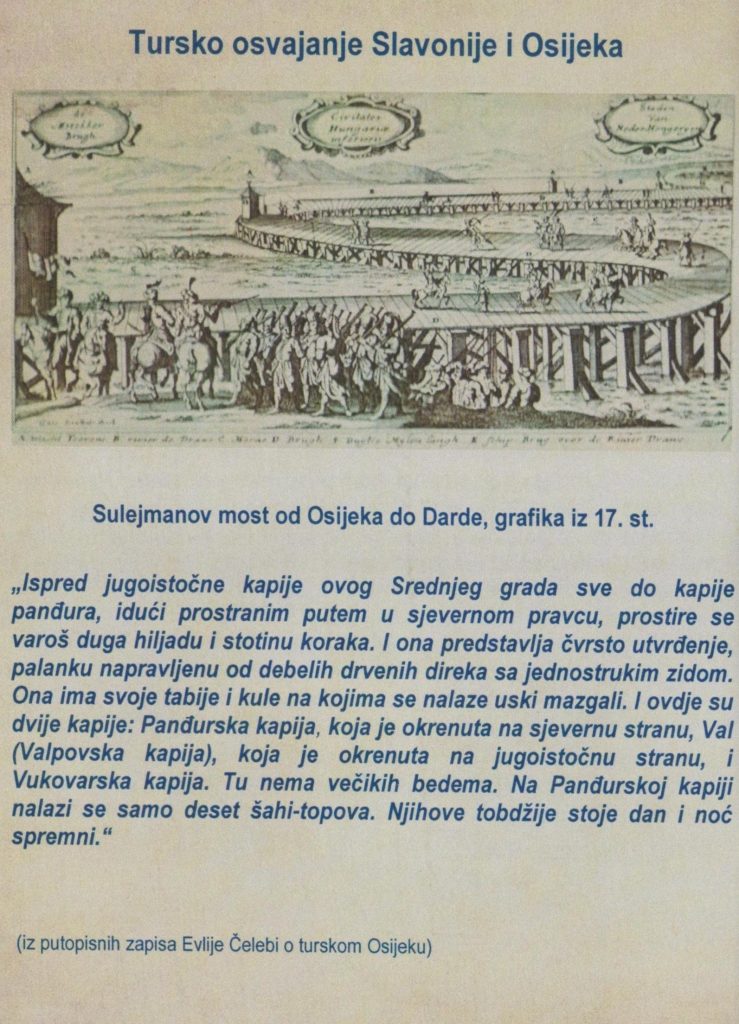 Tursko osvajanje Slavonije i Osijeka
Brugh.
Civitates
Hungariae
inferioris
Steden
Van
Neder Hongeryen
Sulejmanov most od Osijeka do Darde, grafika iz 17. st.
„Ispred jugoistočne kapije ovog Srednjeg grada sve do kapije
panđura, idući prostranim putem u sjevernom pravcu, prostire se
varoš duga hiljadu i stotinu koraka. I ona predstavlja čvrsto utvrđenje,
palanku napravljenu od debelih drvenih direka sa jednostrukim zidom.
Ona ima svoje tabije i kule na kojima se nalaze uski mazgali. I ovdje su
dvije kapije: Panđurska kapija, koja je okrenuta na sjevernu stranu, Val
(Valpovska kapija), koja je okrenuta na jugoistočnu stranu, i
Vukovarska kapija. Tu nema večikih bedema. Na Panđurskoj kapiji
nalazi se samo deset šahi-topova. Njihove tobdžije stoje dan i noć
spremni.“
(iz putopisnih zapisa Evlije Čelebi o turskom Osijeku)